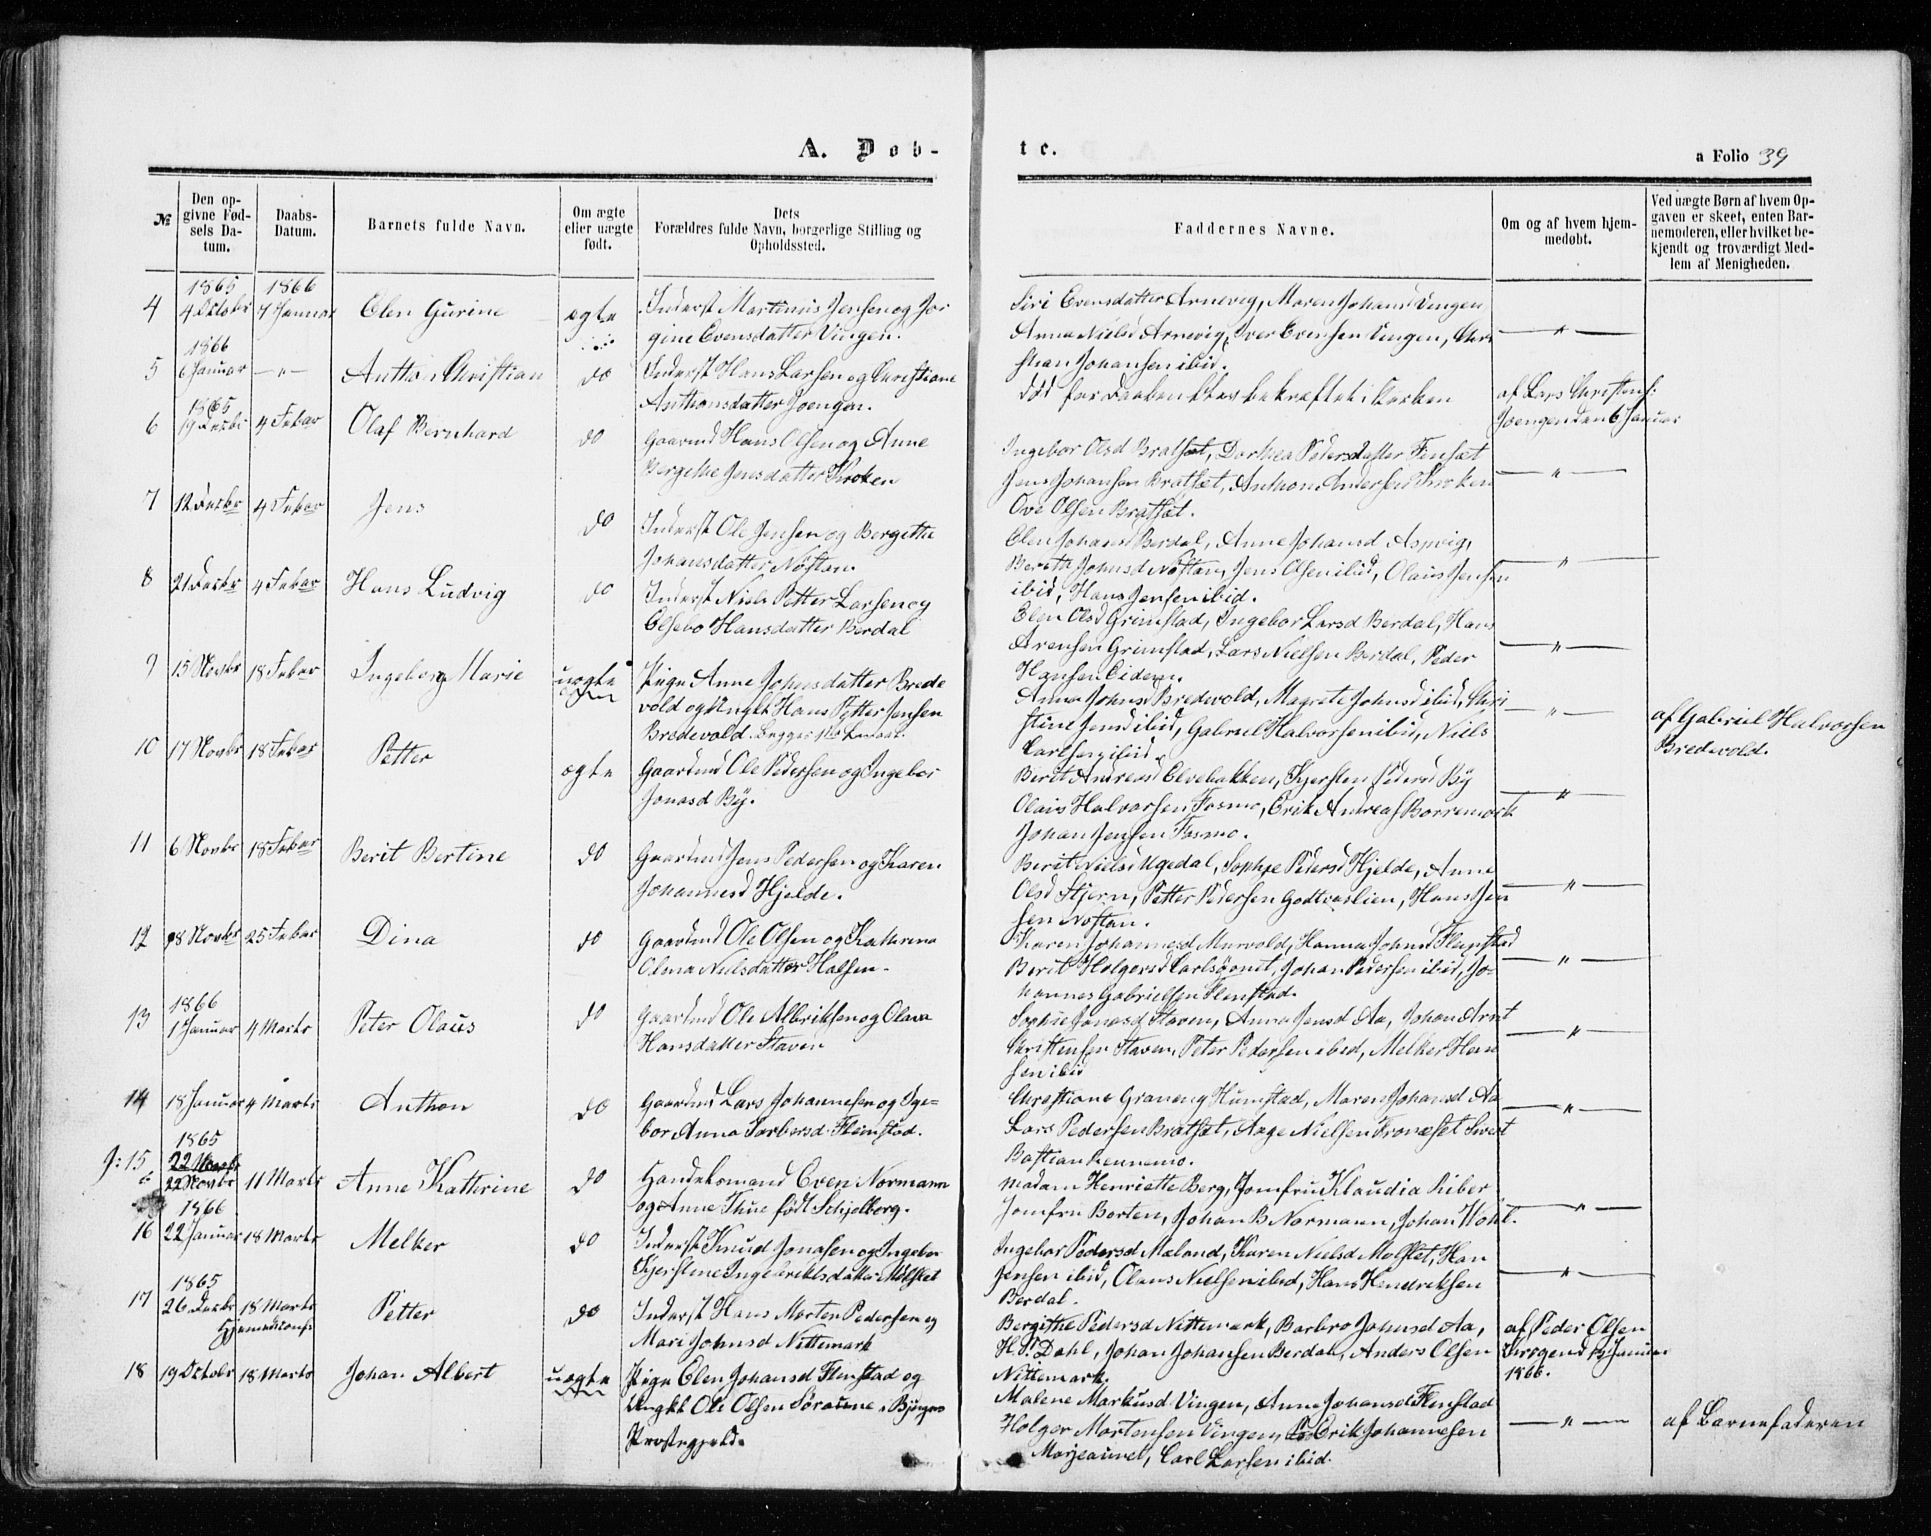 A. Døb-
te.
a Folio 39
№
Den op-
givne Fød-
sels Da-
tum.
Daabs-
Datum.
Barnets fulde Navn.
Om ægte
eller uægte
født.
Dets
Forældres fulde Navn, borgerlige Stilling og
Opholdssted.
Faddernes Navne.
Om og af hvem hjem-
medøbt.
Ved uægte Børn af hvem Op-
gaven er skeet, enten Bar-
nemoderen, eller hvilket be-
kjendt og troværdigt Med-
lem af Menigheden.
1865 1866
4 4 Oktobr 7 Januar Elen Gurine ægte Inderst Martinus Jensen og Jor
gine Evensdatter Vingen.
Siri Evensdatter Arnevig, Maren Johansd Vingen
Anna Nielsd Arnevig, Iver Evensen Vingen, Chri
stian Johansen ibid.
— " —
1866
5 6 Januar — " — Anthon Christian do Inderst Hans Larsen og Christiane
Anthonsdatter Joengen.
død før Daaben blev bekræftet i Kirken
af Lars Christens:
Joengen den 6 Januar
1865
6 19 Decbr 4 Febar Olaf Bernhard do Gaardmd Hans Olsen og Anne
Bergithe Jensdatter Kroken
Ingebor Olsd Bratset, Dorthea Pedersdatter Finset
Jens Johansen Bratset, Anthon Andersen Kroken
Ove Olsen Bratset.
— " —
7 12 Decbr 4 Febar Jens do Inderst Ole Jensen og Bergitha
Johansdatter Nøstan
Elen Johansd Berdal, Anne Johansd Aspvig,
Bereth Johnsd Nøstan, Jens Olsen ibid, Olaus Jensen
ibid, Hans Jensen ibid.
— " —
8 21 Decbr 4 Febar Hans Ludvig do Inderst Niels Petter Larsen og
Elsebo Hansdatter Berdal
Elen Olsd Grimstad, Ingebor Larsd Berdal, Hans
Arensen Grimstad, Lars Nielsen Berdal, Peder
Hansen Eidem.
— " —
9 15 Novbr 18 Febar Ingeborg Marie uægte Pige Anne Johnsdatter Brede
vold og Ungkl Hans Petter Jensen
Bredevold.
Anna Johnsd Bredevold, Magrete Johnsd ibid, Chri
stine Jensd ibid, Gabriel Halvorsen ibid, Niels
Carlsen ibid.
— " —
af Gabriel Halvorsen
Bredevold.
10 17 Novbr 18 Febar Petter ægte Gaardmd Ole Pedersen og Ingebor
Jonasd By.
Berit Andreasd Elvebakken, Kjersten Pedersd By
Olais Halvorsen Fosmo, Erik Andreas Borremark
Johan Jensen Fosmo.
— " —
11 6 Novbr 18 Febar Berit Bertine do Gaardmd Jens Pedersen og Karen
Johannesd Hjelde.
Berit Nielsd Ugedal, Sophie Pedersd Hjelde, Anne
Olsd Stjern, Petter Pedersen Godtvaslien, Hans Jen
sen Nøstan.
— " —
12 18 Novbr 25 Febar Dina do Gaardmd Ole Olsen og Kathrina
Olena Nielsdatter Halsen.
Karen Johannesd Murvold, Hanna Johnsd Flenstad
Berit Holgersd Carlsøomt, Johan Pedersen ibid, Jo-
hannes Gabrielsen Flenstad.
— " —
1866
13 1 Januar 4 Marts Peter Olaus do Gaardmd Ole Albriktsen og Olava
Hansdatter Staven
Sophie Jonasd Staven, Anna Jensd Aa, Johan Arnt
Christensen Staven, Peter Pedersen ibid, Melker Han
sen ibid
— " —
14 18 Januar 4 Marts Anthon do Gaardmd Lars Johannesen og Inge-
bor Anna Torbersd. Flemstad.
Christiane Graneng Humstad, Maren Johansd Aa
Lars Pedersen Bratset, Aage Nielsen Fronæset
Bastian Rennemo.
— " —
1865
15 22 Novbr 11 Marts Anne Kathrine do Handelsmand Even Normann
og Anne Thue født Schjelberg.
Madam Henriette Berg, Jomfru Klaudia Riber
Jomfru Borten, Johan B Normann, Johan Wohl.
— " —
1866
16 22 Januar 18 Marts Melker do Inderst Knud Jonasen og Ingebor
Kjerstine Ingebriktsdatter Molslet
Ingebor Pedersd Meland, Karen Nielsd Molslet, Han
Jensen ibid, Olaus Nielsen ibid, Hans Hendriksen
Berdal.
— " —
1865
17 26 Decbr 18 Marts Petter do Inderst Hans Morten Pedersen og
Mari Johnsd Nittemark
Bergithe Pedersd Nittemark, Barbro Johnsd Aa,
H. P. Dahl, Johan Johansen Berdal, Anders Olsen
Nittemark.
af Peder Olsen
1866.
18 19 Oktobr 18 Marts Johan Albert uægte Pige Elen Johansd Flenstad og
Ungkl Ole Olsen Søraune i Bjugns
Præstegjeld.
Malene Markusd Vingen, Anne Johansd Flenstad
Holger Mortensen Vingen, Erik Johannesen
Morjeaunet, Carl Larsen ibid.
— " —
af Barnefaderen